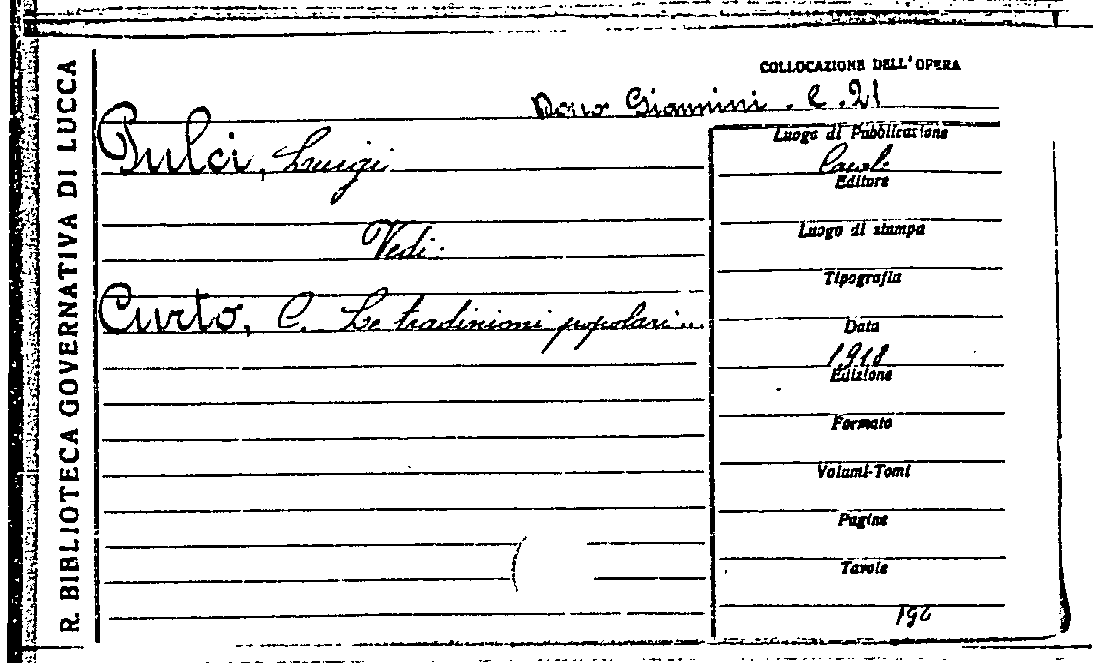 R. BIBLIOTECA GOVERNATIVA DI LUCCA
COLLOCAZIONE DELL'OPERA
Dono Giannini . C. 21
Pulci, Luigi
Vedi:
Curto, C. Le tradinioni popolari...
Luogo di Pubblicazione
Casale
Editore
Luogo di stampa
Tipografia
Data
1918
Edizione
Formato
Volumi-Tomi
Pagine
Tavole